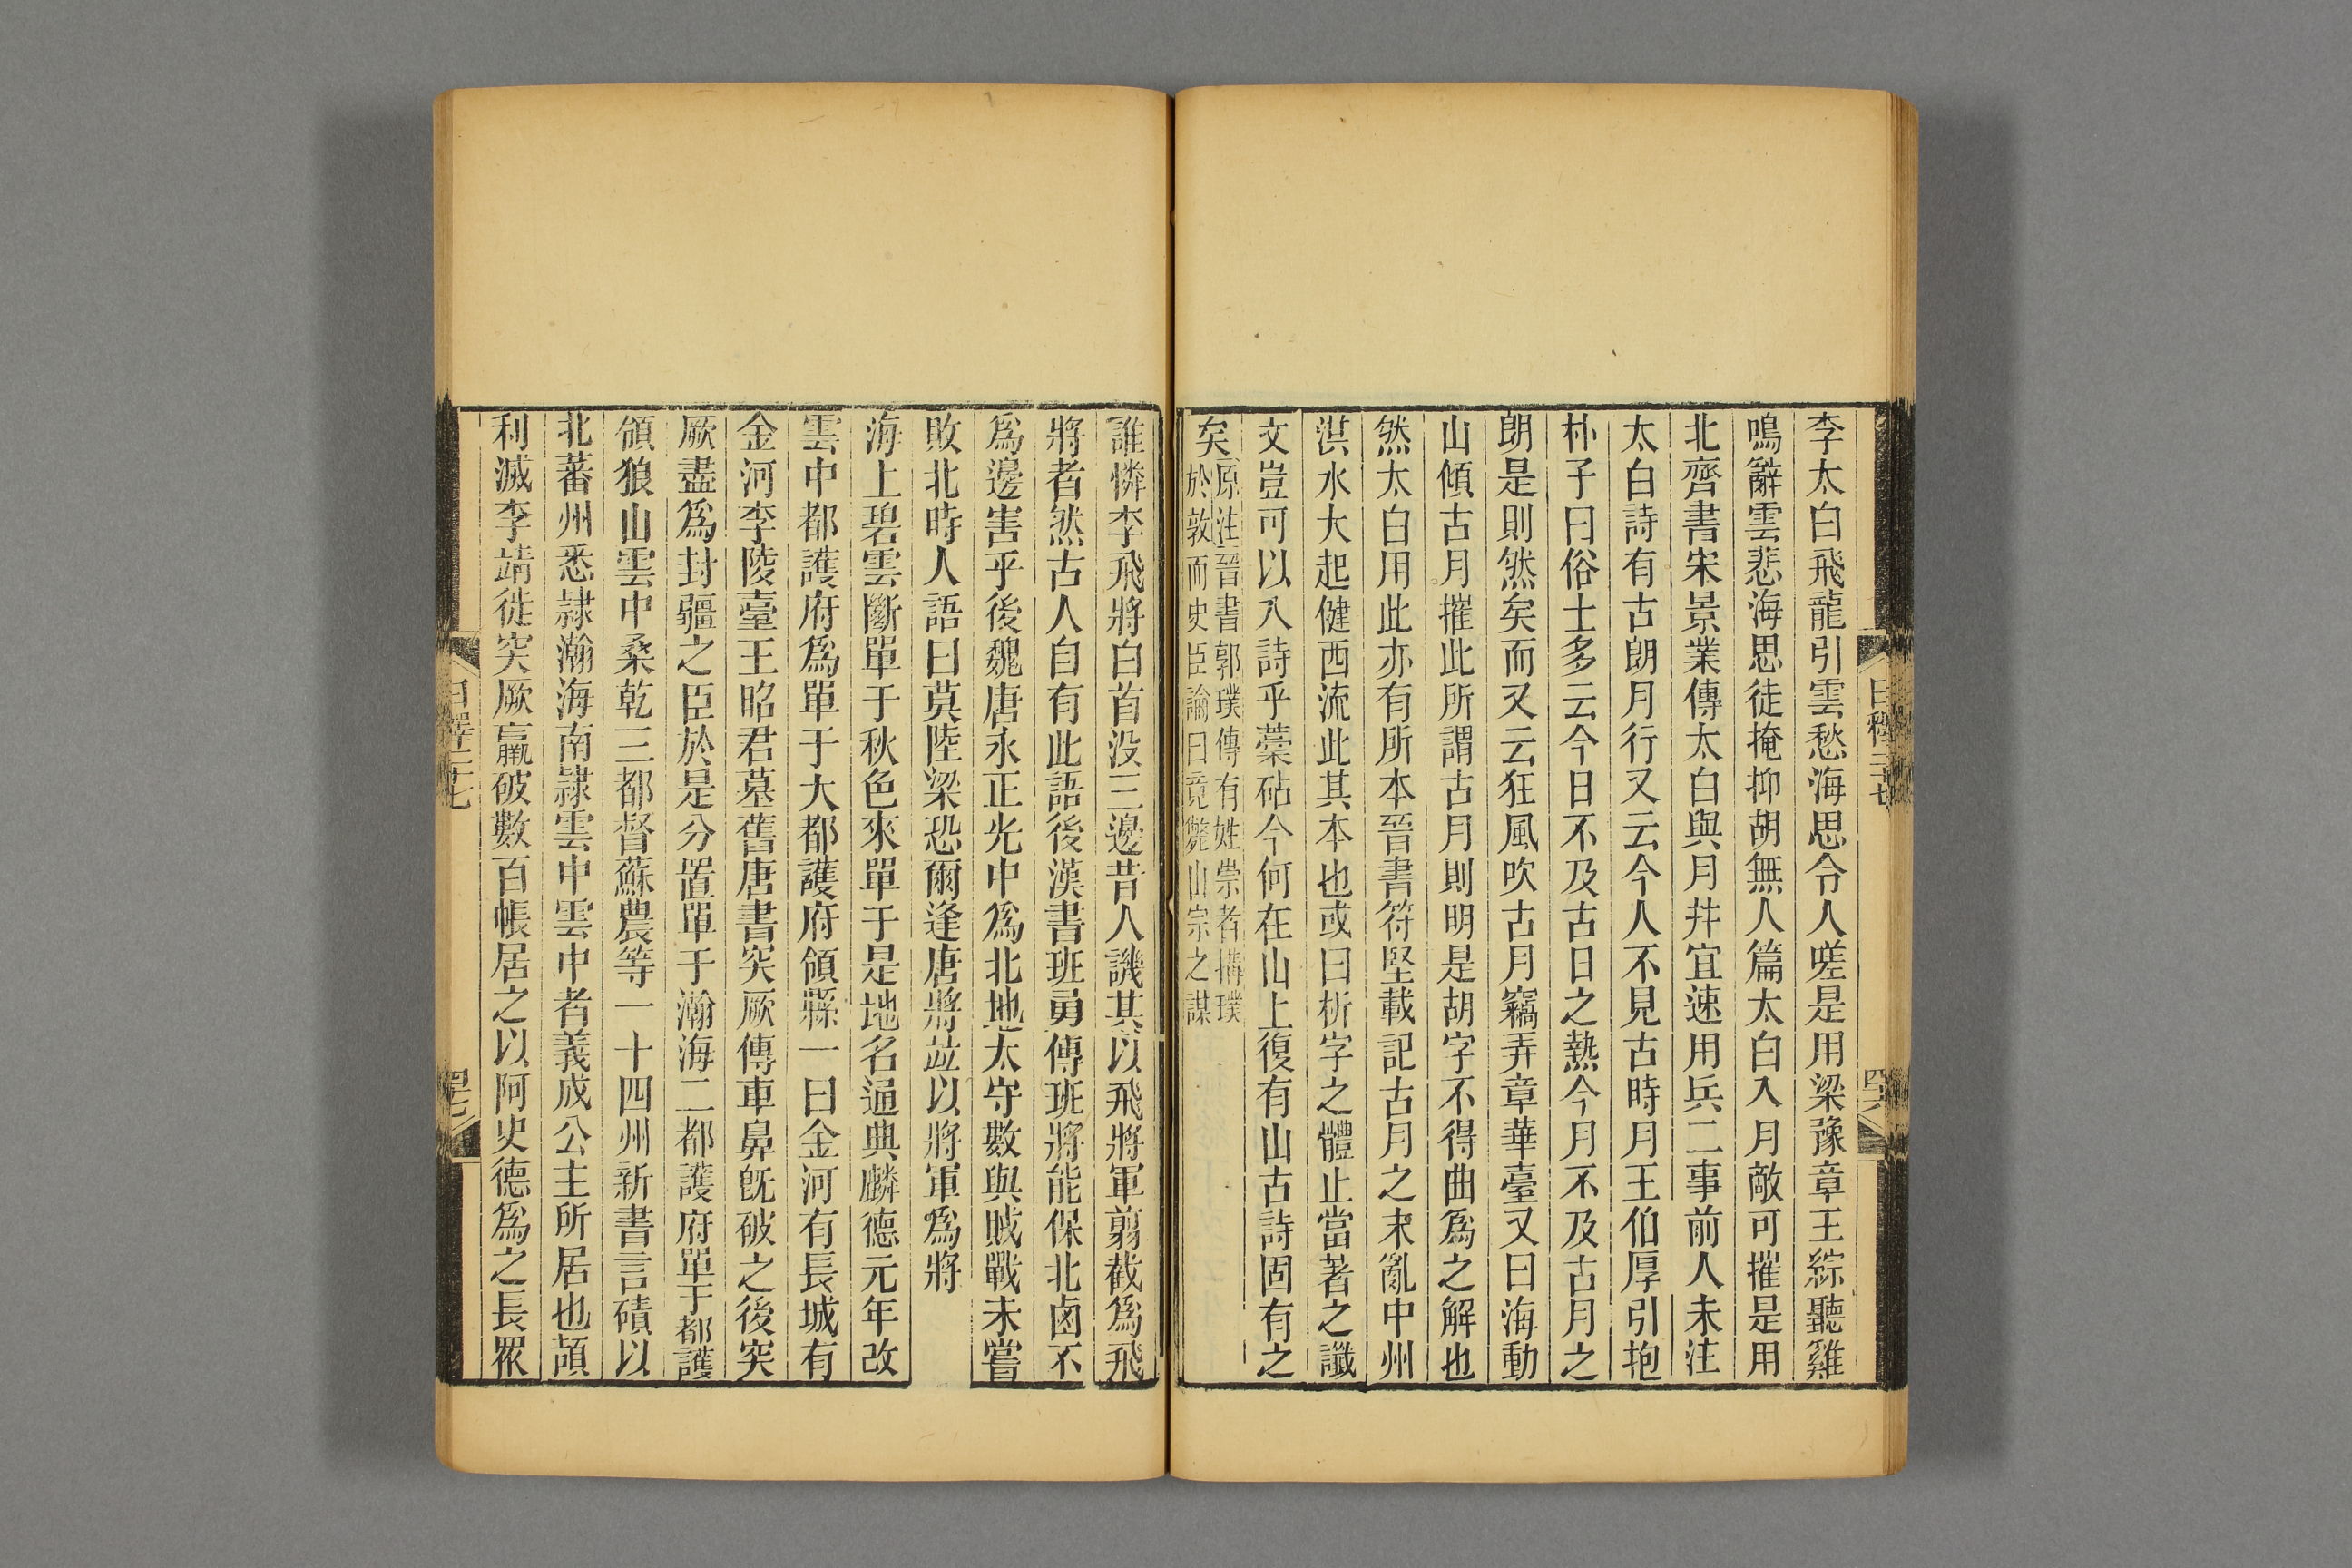 李太白飛龍引雲愁海思令人嗟是用梁豫章王綜聽雞
鳴辭雲悲海思徒掩抑胡無人篇太白入月敵可摧是用
北齊書宋景業傳太白與月幷宜速用兵二事前人未注
太白詩有古朗月行又云今人不見古時月王伯厚引抱
朴子曰俗士多云今日不及古日之熱今月不及古月之
朗是則然矣而又云狂風吹古月竊弄章華臺又曰海動
山傾古月摧此所謂古月則明是胡字不得曲爲之解也
然太白用此亦有所本晉書苻堅載記古月之末亂中州
洪水大起健西流此其本也或曰析字之體止當著之讖
文豈可以入詩乎藁砧今何在山上復有山古詩固有之
矣
原注晉書郭璞傳有姓崇者搆璞
於敦而史臣論曰竟斃山宗之謀
誰憐李飛將白首没三邊昔人譏其以飛將軍翦截爲飛
將者然古人自有此語後漢書班勇傳班將能保北鹵不
爲邊害乎後魏唐永正光中爲北地太守數與賊戰未嘗
敗北時人語曰莫陸梁恐爾逢唐將並以將軍爲將
海上碧雲斷單于秋色來單于是地名通典麟德元年改
雲中都護府爲單于大都護府領縣一曰金河有長城有
金河李陵臺王昭君墓舊唐書突厥傳車鼻既破之後突
厥盡爲封疆之臣於是分置單于瀚海二都護府單于都護
領狼山雲中桑乾三都督蘇農等一十四州新書言磧以
北蕃州悉隸瀚海南隸雲中雲中者義成公主所居也頡
利滅李靖徙突厥羸破數百帳居之以阿史德爲之長衆